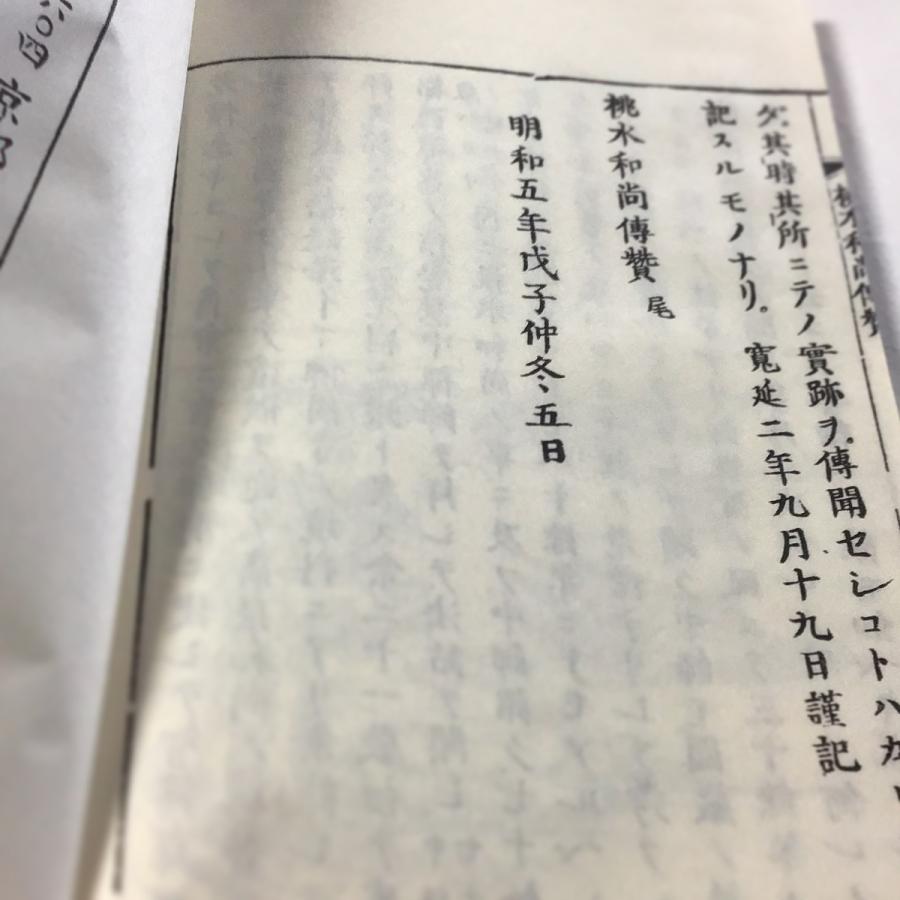 桃水和尚傳贊
欠其時其所ニテノ實跡ヲ。傳聞セシコトハカ
記スルモノナリ。寬延二年九月十九日謹記
桃水和尚傳贊 尾
明和五年戊子仲冬五日